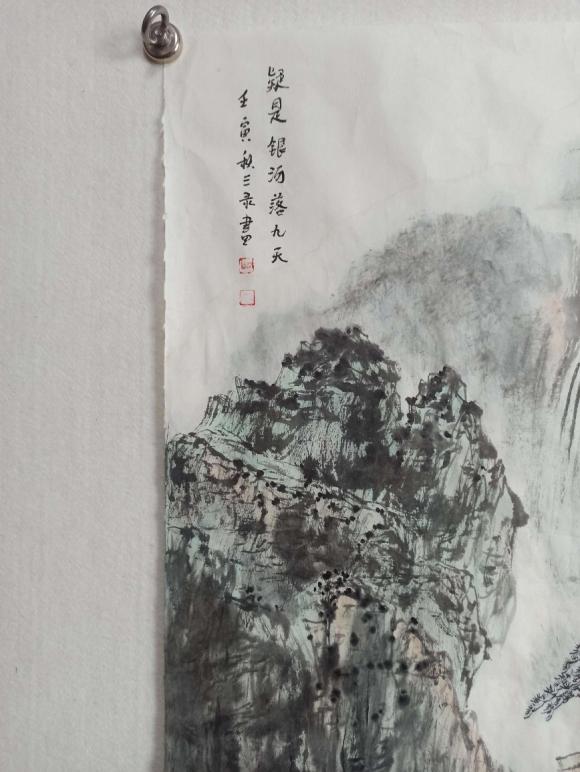 疑是银河落九天
壬寅秋三录畫